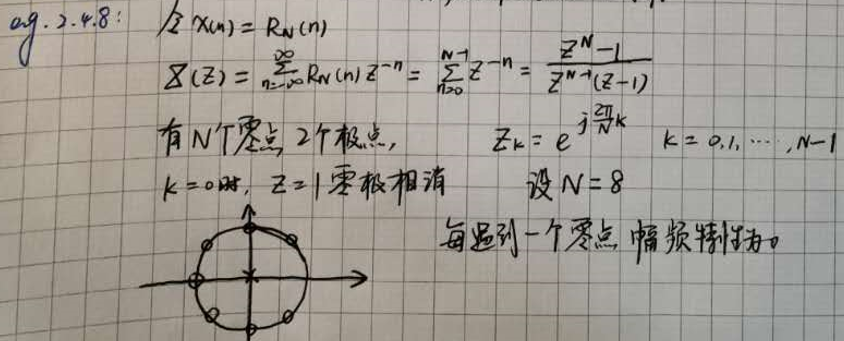 eg. 2.4.8: 令 x(n) = R_N(n)
X(Z) = \sum_{n=-\infty}^{\infty} R_N(n) Z^{-n} = \sum_{n=0}^{N-1} Z^{-n} = \frac{Z^N - 1}{Z^{N-1}(Z-1)}
有N个零点 2个极点, Z_k = e^{j\frac{2π}{N}k} k = 0,1,⋯,N-1
k=0时, Z=1零极相消 设N=8
每遇到一个零点 幅频特性为0